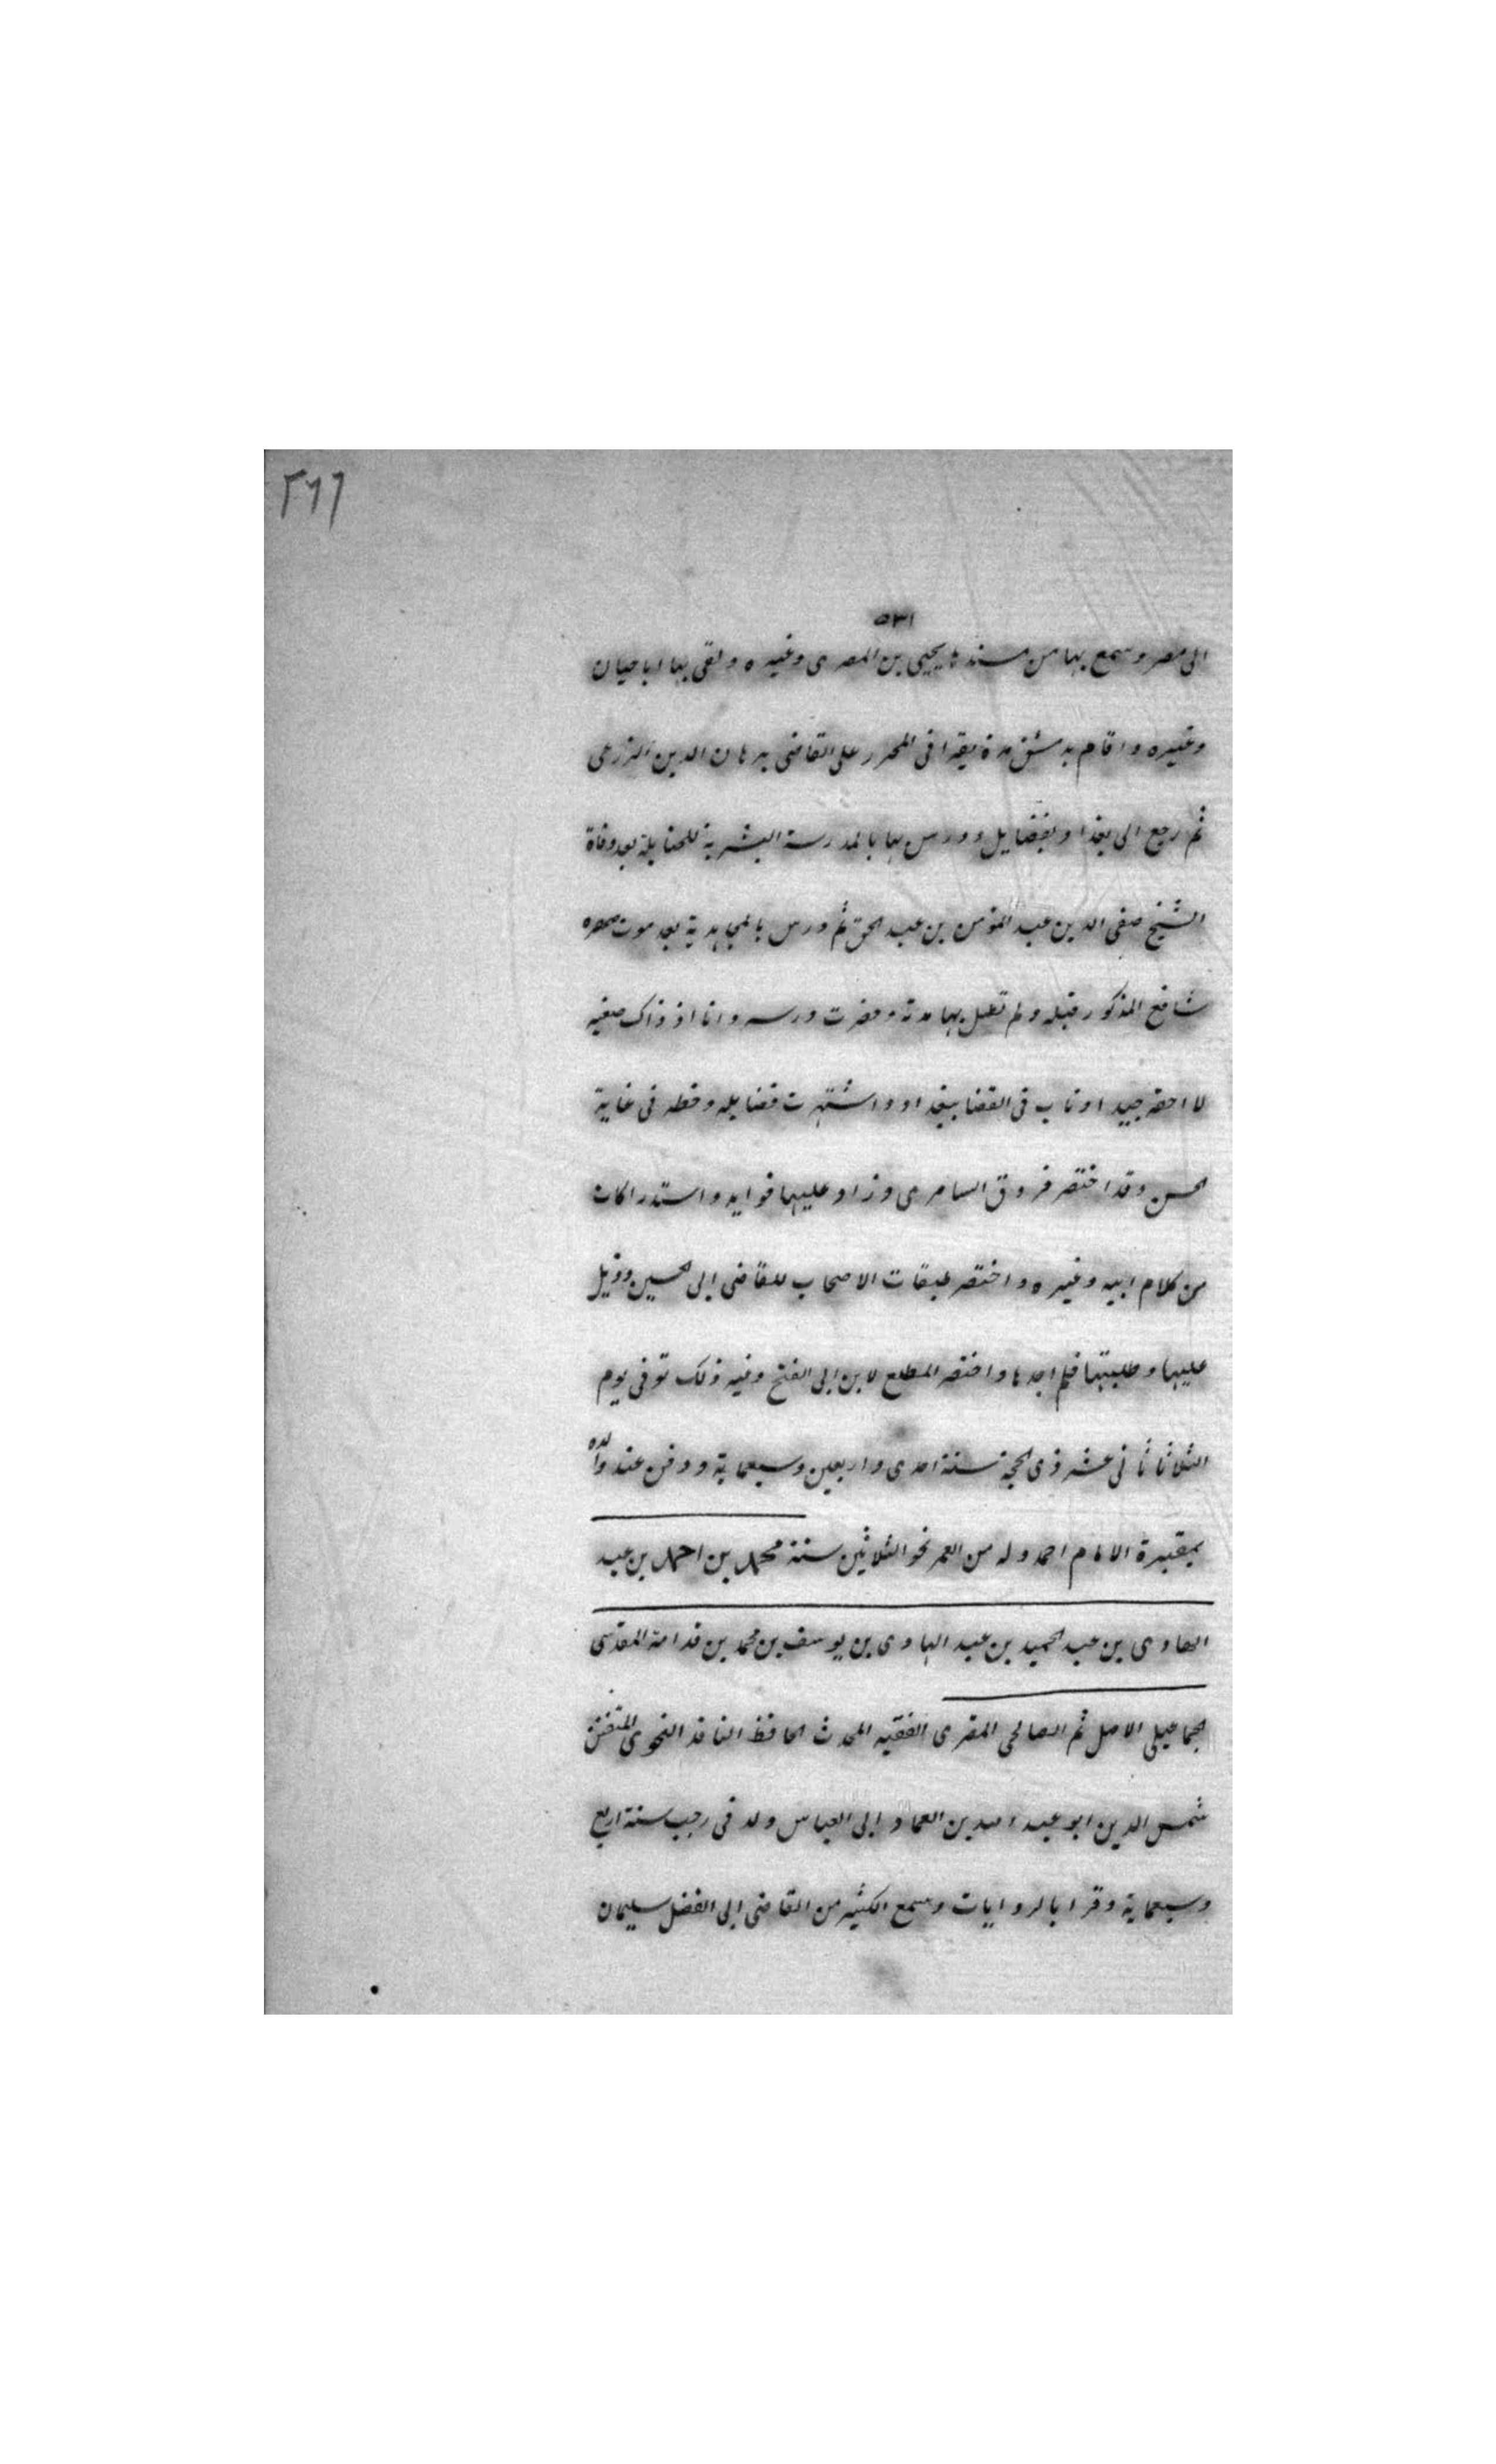 ٢٦٦
٥٣١
الى مصر وسمع بها من مسندها يحيى بن المصرى وغيره ولقى بها اباحيان
وغيره واقام بدمشق مدة يقرا فى المحرر على القاضى برهان الدين الزرعى
ثم رجع الى بغداد بفضايل ودرس بها بالمدرسة البشرية للحنابلة بعد وفاة
الشيخ صفى الدين عبد المؤمن بن عبد الحق ثم درس بالمجاهدية بعد موت صهره
شافع المذكور قبله ولم تطل بها مدته وحضرت درسه وانا اذ ذاك صغير
لا احقه جيدا وناب فى القضا ببغداد واشتهرت فضايله وخطه فى غاية
الحسن وقد اختصر فروق السامرى وزاد عليها فوايد واستدراكات
من كلام ابيه وغيره واختصر طبقات الاصحاب للقاضى ابى الحسين وذيل
عليها وطلبتها فلم اجدها واختصر المطلع لابن ابى الفتح وغير ذلك توفى يوم
الثلاثا ثانى عشر ذى الحجة سنة احدى واربعين وسبعماية ودفن عند والده
بمقبرة الامام احمد وله من العمر نحو الثلاثين سنة محمد بن احمد بن عبد
الهادى بن عبد الحميد بن عبد الهادى بن يوسف بن محمد بن قدامة المقدسى
الجماعيلى الاصل ثم الصالحى المقرى الفقيه المحدث الحافظ الناقد النحوى المتفنن
شمس الدين ابو عبد الله بن العماد ابى العباس ولد فى رجب سنة اربع
وسبعماية وقرا بالروايات وسمع الكثير من القاضى ابى الفضل سليمان